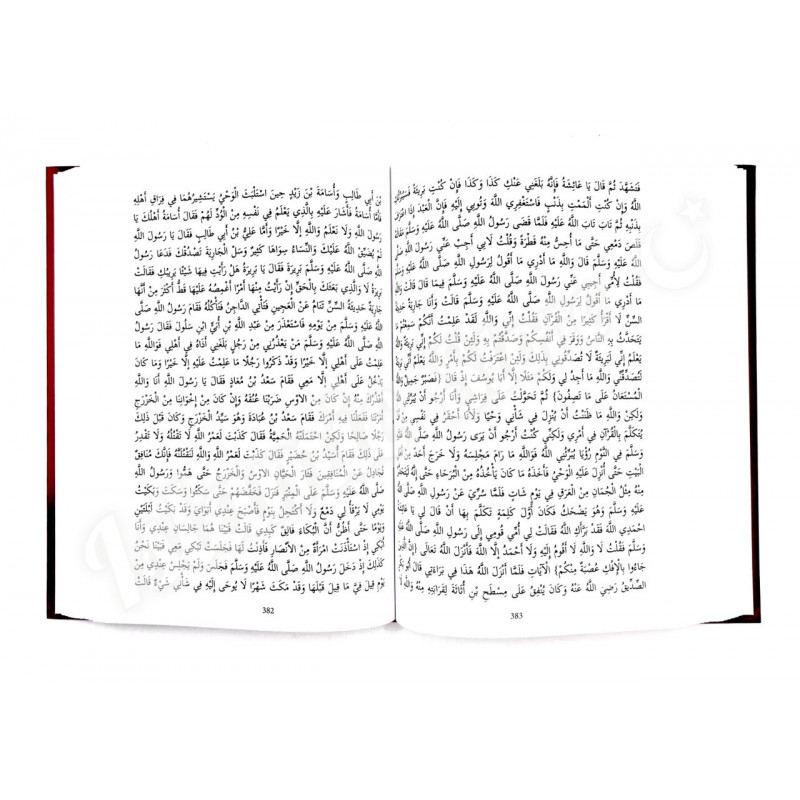 بْنَ أَبِي طَالِبٍ وَأُسَامَةَ بْنَ زَيْدٍ حِينَ اسْتَلْبَثَ الْوَحْيُ يَسْتَشِيرُهُمَا فِي فِرَاقِ أَهْلِهِ
فَأَمَّا أُسَامَةُ فَأَشَارَ عَلَيْهِ بِالَّذِي يَعْلَمُ فِي نَفْسِهِ مِنْ الْوُدِّ لَهُمْ فَقَالَ أُسَامَةُ أَهْلُكَ يَا
رَسُولَ اللَّهِ وَلَا نَعْلَمُ وَاللَّهِ إِلَّا خَيْرًا وَأَمَّا عَلِيُّ بْنُ أَبِي طَالِبٍ فَقَالَ يَا رَسُولَ اللَّهِ
لَمْ يُضَيِّقْ اللَّهُ عَلَيْكَ وَالنِّسَاءُ سِوَاهَا كَثِيرٌ وَسَلْ الْجَارِيَةَ تَصْدُقْكَ فَدَعَا رَسُولُ
اللَّهِ صَلَّى اللَّهُ عَلَيْهِ وَسَلَّمَ بَرِيرَةَ فَقَالَ يَا بَرِيرَةُ هَلْ رَأَيْتِ فِيهَا شَيْئًا يَرِيبُكِ فَقَالَتْ
بَرِيرَةُ لَا وَالَّذِي بَعَثَكَ بِالْحَقِّ إِنْ رَأَيْتُ مِنْهَا أَمْرًا أَغْمِصُهُ عَلَيْهَا قَطُّ أَكْثَرَ مِنْ أَنَّهَا
جَارِيَةٌ حَدِيثَةُ السِّنِّ تَنَامُ عَنْ الْعَجِينِ فَتَأْتِي الدَّاجِنُ فَتَأْكُلُهُ فَقَامَ رَسُولُ اللَّهِ صَلَّى
اللَّهُ عَلَيْهِ وَسَلَّمَ مِنْ يَوْمِهِ فَاسْتَعْذَرَ مِنْ عَبْدِ اللَّهِ بْنِ أُبَيٍّ ابْنِ سَلُولَ فَقَالَ رَسُولُ
اللَّهِ صَلَّى اللَّهُ عَلَيْهِ وَسَلَّمَ مَنْ يَعْذُرُنِي مِنْ رَجُلٍ بَلَغَنِي أَذَاهُ فِي أَهْلِي فَوَاللَّهِ مَا
عَلِمْتُ عَلَى أَهْلِي إِلَّا خَيْرًا وَقَدْ ذَكَرُوا رَجُلًا مَا عَلِمْتُ عَلَيْهِ إِلَّا خَيْرًا وَمَا كَانَ
يَدْخُلُ عَلَى أَهْلِي إِلَّا مَعِي فَقَامَ سَعْدُ بْنُ مُعَاذٍ فَقَالَ يَا رَسُولَ اللَّهِ أَنَا وَاللَّهِ
أَعْذُرُكَ مِنْهُ إِنْ كَانَ مِنْ الْأَوْسِ ضَرَبْنَا عُنُقَهُ وَإِنْ كَانَ مِنْ إِخْوَانِنَا مِنْ الْخَزْرَجِ
أَمَرْتَنَا فَفَعَلْنَا فِيهِ أَمْرَكَ فَقَامَ سَعْدُ بْنُ عُبَادَةَ وَهُوَ سَيِّدُ الْخَزْرَجِ وَكَانَ قَبْلَ ذَلِكَ
رَجُلًا صَالِحًا وَلَكِنْ احْتَمَلَتْهُ الْحَمِيَّةُ فَقَالَ كَذَبْتَ لَعَمْرُ اللَّهِ لَا تَقْتُلُهُ وَلَا تَقْدِرُ
عَلَى ذَلِكَ فَقَامَ أُسَيْدُ بْنُ حُضَيْرٍ فَقَالَ كَذَبْتَ لَعَمْرُ اللَّهِ وَاللَّهِ لَنَقْتُلَنَّهُ فَإِنَّكَ مُنَافِقٌ
تُجَادِلُ عَنْ الْمُنَافِقِينَ فَثَارَ الْحَيَّانِ الْأَوْسُ وَالْخَزْرَجُ حَتَّى هَمُّوا وَرَسُولُ اللَّهِ
صَلَّى اللَّهُ عَلَيْهِ وَسَلَّمَ عَلَى الْمِنْبَرِ فَنَزَلَ فَخَفَّضَهُمْ حَتَّى سَكَتُوا وَسَكَتَ وَبَكَيْتُ
يَوْمِي لَا يَرْقَأُ لِي دَمْعٌ وَلَا أَكْتَحِلُ بِنَوْمٍ فَأَصْبَحَ عِنْدِي أَبَوَايَ وَقَدْ بَكَيْتُ لَيْلَتَيْنِ
وَيَوْمًا حَتَّى أَظُنُّ أَنَّ الْبُكَاءَ فَالِقٌ كَبِدِي قَالَتْ فَبَيْنَا هُمَا جَالِسَانِ عِنْدِي وَأَنَا
أَبْكِي إِذْ اسْتَأْذَنَتْ امْرَأَةٌ مِنْ الْأَنْصَارِ فَأَذِنْتُ لَهَا فَجَلَسَتْ تَبْكِي مَعِي فَبَيْنَا نَحْنُ
كَذَلِكَ إِذْ دَخَلَ رَسُولُ اللَّهِ صَلَّى اللَّهُ عَلَيْهِ وَسَلَّمَ فَجَلَسَ وَلَمْ يَجْلِسْ عِنْدِي مِنْ
يَوْمِ قِيلَ فِيَّ مَا قِيلَ قَبْلَهَا وَقَدْ مَكَثَ شَهْرًا لَا يُوحَى إِلَيْهِ فِي شَأْنِي شَيْءٌ قَالَتْ
382
فَتَشَهَّدَ ثُمَّ قَالَ يَا عَائِشَةُ فَإِنَّهُ بَلَغَنِي عَنْكِ كَذَا وَكَذَا فَإِنْ كُنْتِ بَرِيئَةً فَسَيُبَرِّئُكِ
اللَّهُ وَإِنْ كُنْتِ أَلْمَمْتِ بِذَنْبٍ فَاسْتَغْفِرِي اللَّهَ وَتُوبِي إِلَيْهِ فَإِنَّ الْعَبْدَ إِذَا
بِذَنْبِهِ ثُمَّ تَابَ تَابَ اللَّهُ عَلَيْهِ فَلَمَّا قَضَى رَسُولُ اللَّهِ صَلَّى اللَّهُ عَلَيْهِ
قَلَصَ دَمْعِي حَتَّى مَا أُحِسُّ مِنْهُ قَطْرَةً وَقُلْتُ لِأَبِي أَجِبْ عَنِّي رَسُولَ اللَّهِ
اللَّهُ عَلَيْهِ وَسَلَّمَ قَالَ وَاللَّهِ مَا أَدْرِي مَا أَقُولُ لِرَسُولِ اللَّهِ صَلَّى اللَّهُ عَلَيْهِ
فَقُلْتُ لِأُمِّي أَجِيبِي عَنِّي رَسُولَ اللَّهِ صَلَّى اللَّهُ عَلَيْهِ وَسَلَّمَ فِيمَا قَالَ قَالَتْ
مَا أَدْرِي مَا أَقُولُ لِرَسُولِ اللَّهِ صَلَّى اللَّهُ عَلَيْهِ وَسَلَّمَ قَالَتْ وَأَنَا جَارِيَةٌ
السِّنِّ لَا أَقْرَأُ كَثِيرًا مِنْ الْقُرْآنِ فَقُلْتُ إِنِّي وَاللَّهِ لَقَدْ عَلِمْتُ أَنَّكُمْ سَمِعْتُمْ
يَتَحَدَّثُ بِهِ النَّاسُ وَوَقَرَ فِي أَنْفُسِكُمْ وَصَدَّقْتُمْ بِهِ وَلَئِنْ قُلْتُ لَكُمْ إِنِّي
لَبَرِيئَةٌ لَا تُصَدِّقُونِي بِذَلِكَ وَلَئِنْ اعْتَرَفْتُ لَكُمْ بِأَمْرٍ وَاللَّهُ يَعْلَمُ
لَتُصَدِّقُنِّي وَاللَّهِ مَا أَجِدُ لِي وَلَكُمْ مَثَلًا إِلَّا أَبَا يُوسُفَ إِذْ قَالَ {فَصَبْرٌ جَمِيلٌ
الْمُسْتَعَانُ عَلَى مَا تَصِفُونَ} ثُمَّ تَحَوَّلْتُ عَلَى فِرَاشِي وَأَنَا أَرْجُو أَنْ يُبَرِّئَنِي
وَلَكِنْ وَاللَّهِ مَا ظَنَنْتُ أَنْ يُنْزِلَ فِي شَأْنِي وَحْيًا وَلَأَنَا أَحْقَرُ فِي نَفْسِي مِنْ
يُتَكَلَّمَ بِالْقُرْآنِ فِي أَمْرِي وَلَكِنِّي كُنْتُ أَرْجُو أَنْ يَرَى رَسُولُ اللَّهِ صَلَّى اللَّهُ
وَسَلَّمَ فِي النَّوْمِ رُؤْيَا يُبَرِّئُنِي اللَّهُ فَوَاللَّهِ مَا رَامَ مَجْلِسَهُ وَلَا خَرَجَ أَحَدٌ
الْبَيْتِ حَتَّى أُنْزِلَ عَلَيْهِ الْوَحْيُ فَأَخَذَهُ مَا كَانَ يَأْخُذُهُ مِنْ الْبُرَحَاءِ حَتَّى إِنَّهُ
مِنْهُ مِثْلُ الْجُمَانِ مِنْ الْعَرَقِ فِي يَوْمٍ شَاتٍ فَلَمَّا سُرِّيَ عَنْ رَسُولِ اللَّهِ صَلَّى
اللَّهُ عَلَيْهِ وَسَلَّمَ وَهُوَ يَضْحَكُ فَكَانَ أَوَّلَ كَلِمَةٍ تَكَلَّمَ بِهَا أَنْ قَالَ لِي يَا عَائِشَةُ
احْمَدِي اللَّهَ فَقَدْ بَرَّأَكِ اللَّهُ فَقَالَتْ لِي أُمِّي قُومِي إِلَى رَسُولِ اللَّهِ صَلَّى اللَّهُ
وَسَلَّمَ فَقُلْتُ لَا وَاللَّهِ لَا أَقُومُ إِلَيْهِ وَلَا أَحْمَدُ إِلَّا اللَّهَ فَأَنْزَلَ اللَّهُ تَعَالَى {إِنَّ
جَاءُوا بِالْإِفْكِ عُصْبَةٌ مِنْكُمْ} الْآيَاتِ فَلَمَّا أَنْزَلَ اللَّهُ هَذَا فِي بَرَاءَتِي قَالَ
الصِّدِّيقُ رَضِيَ اللَّهُ عَنْهُ وَكَانَ يُنْفِقُ عَلَى مِسْطَحِ بْنِ أُثَاثَةَ لِقَرَابَتِهِ مِنْهُ وَاللَّهِ
383